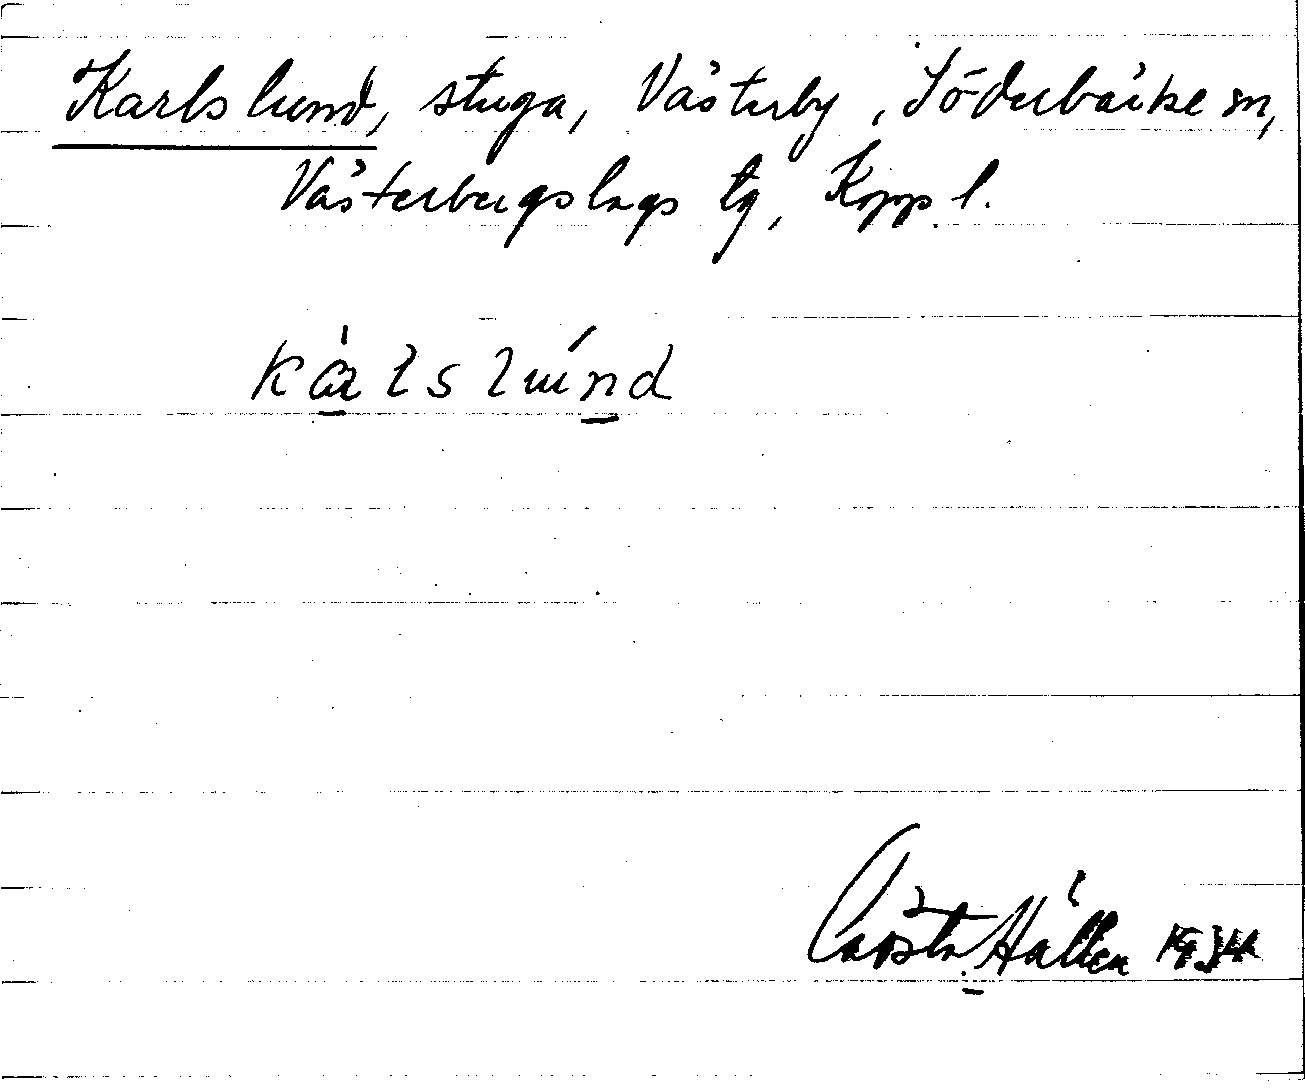 Karlslund, stuga, Västerby, Söderbärke sn,
Västerbergslags tg, Kopp. l.
kárlslúnd
Hállén